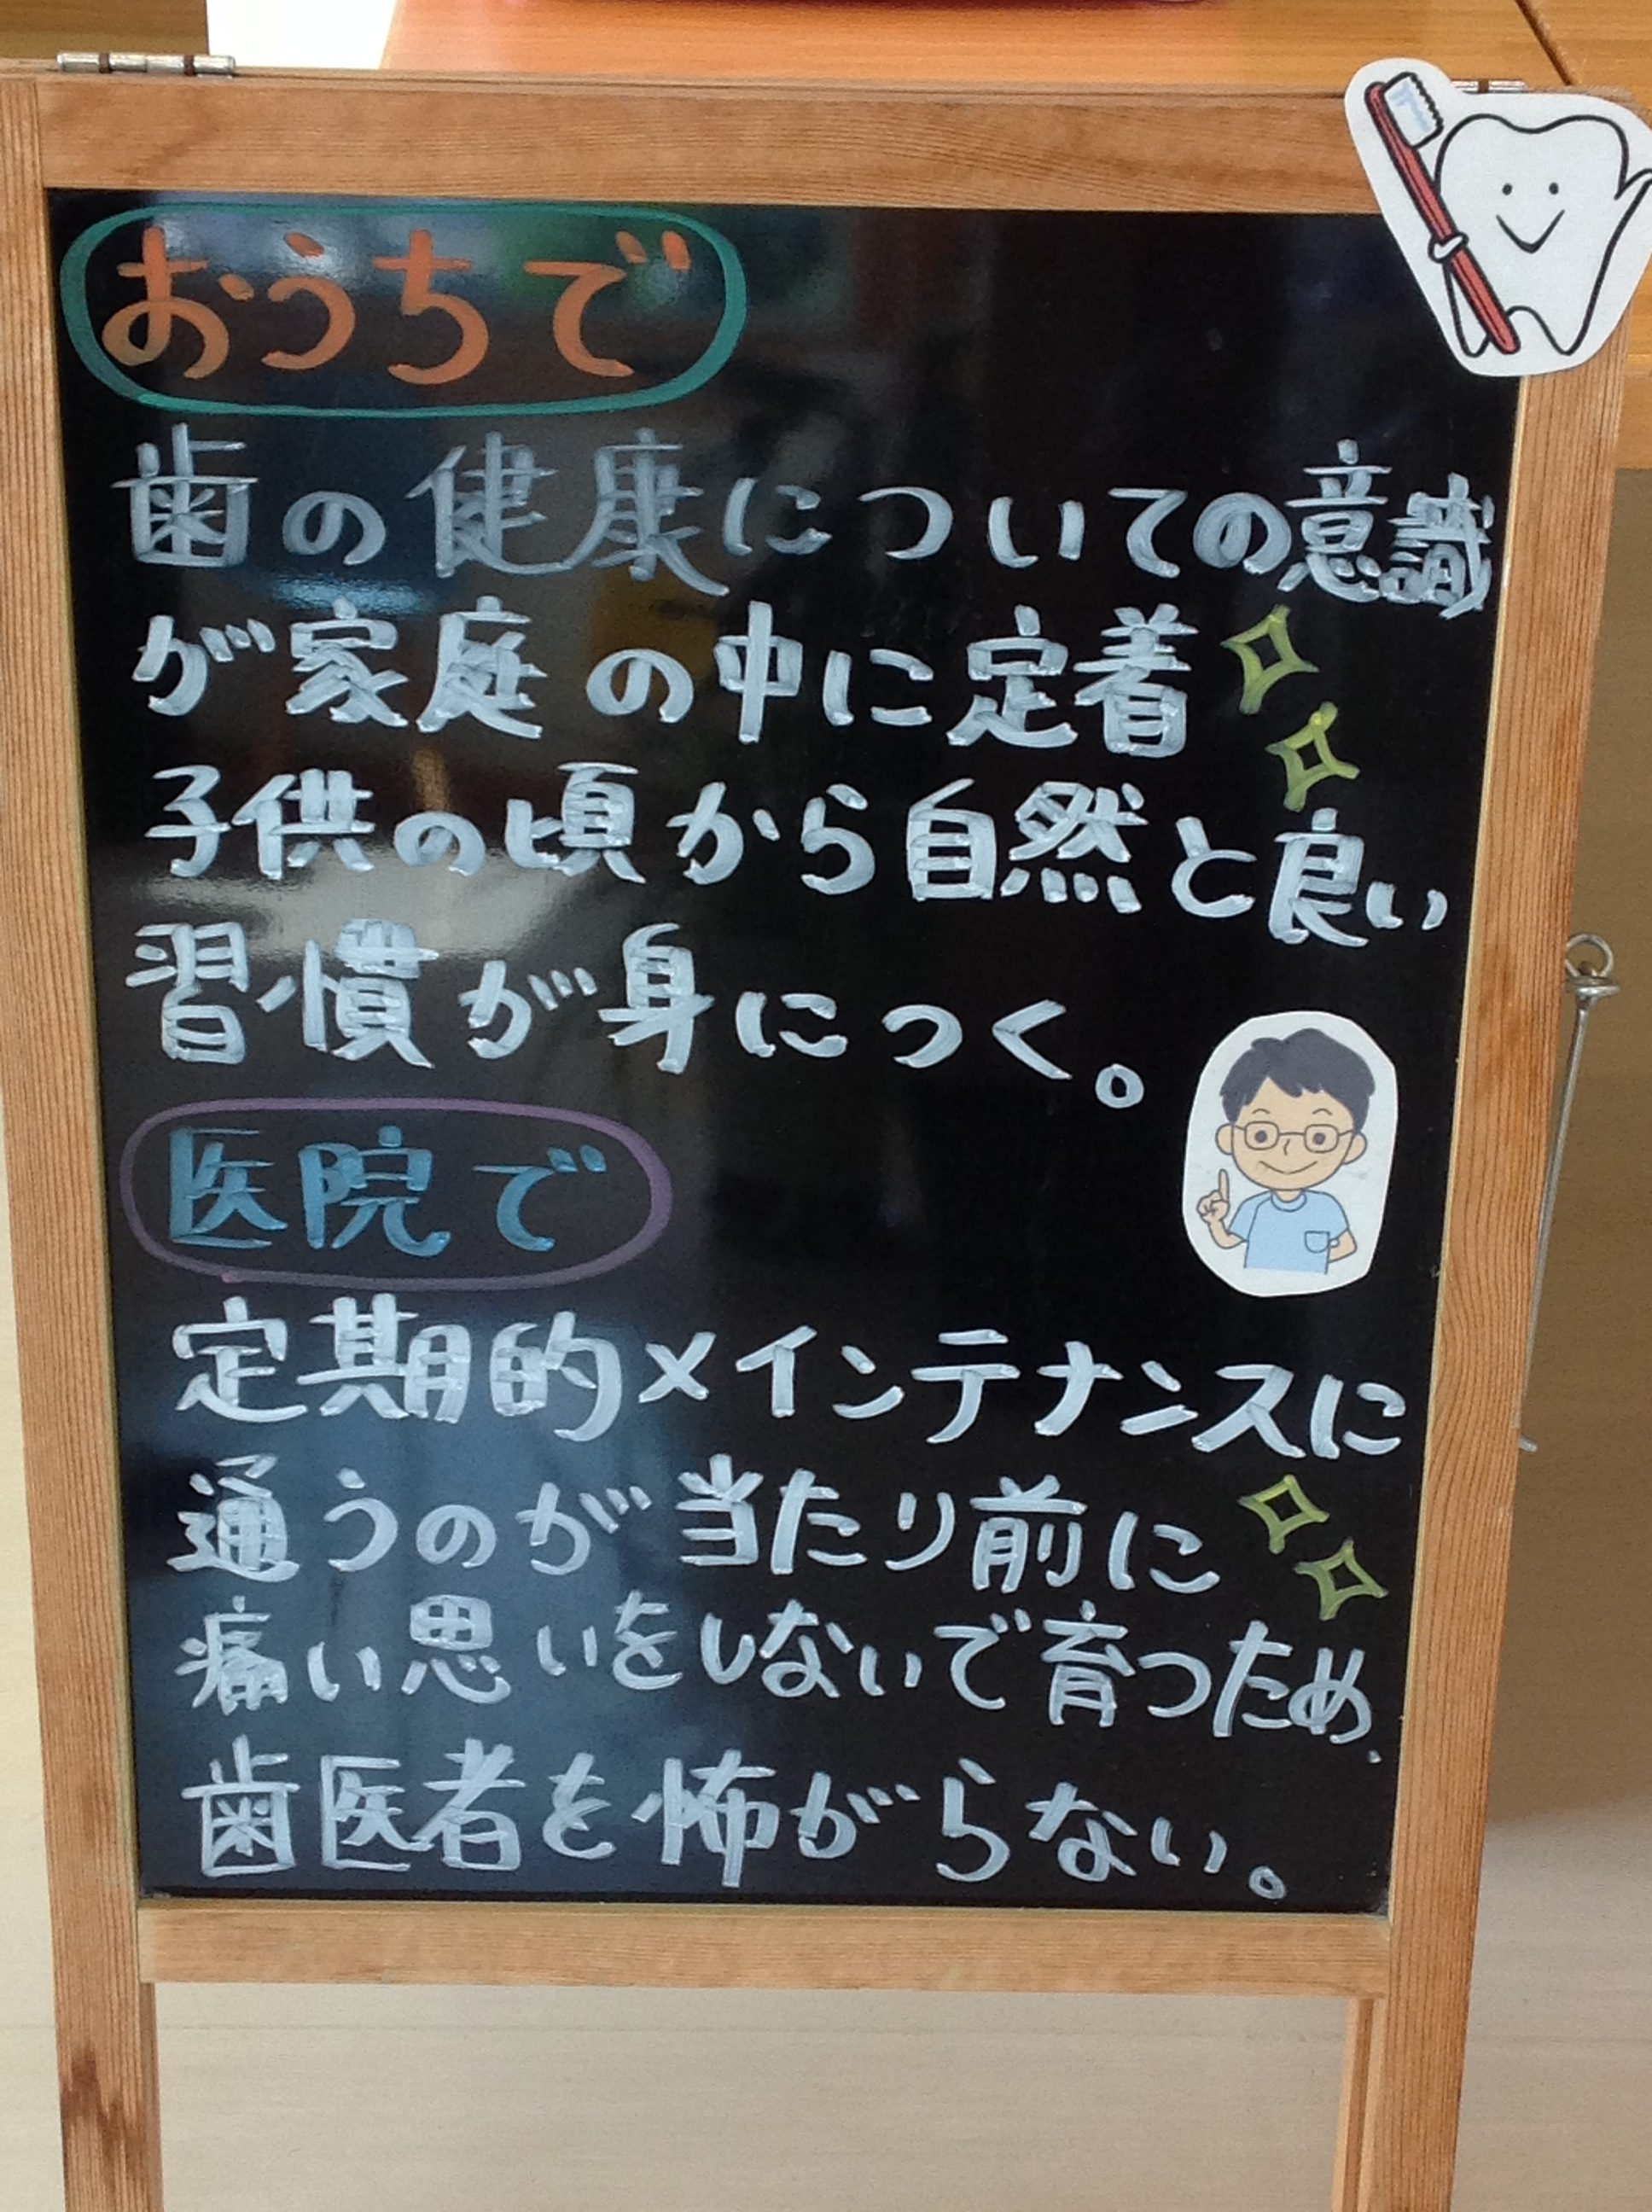 おうちで
歯の健康についての意識
が家庭の中に定着
子供の頃から自然と良い
習慣が身につく。
医院で
定期的メインテナンスに
通うのが当たり前に
痛い思いをしないで育つため、
歯医者を怖がらない。